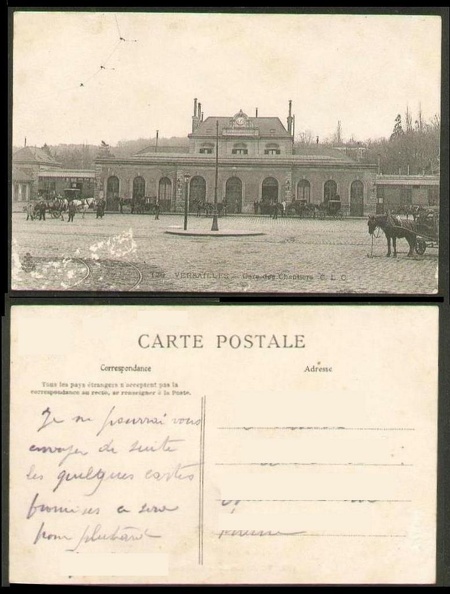 136 VERSAILLES — Gare des Chantiers C. L. C.
CARTE POSTALE
Correspondance
Adresse
Tous les pays étrangers n'acceptent pas la
correspondance au recto, se renseigner à la Poste.
Je ne pourrai vous
envoyer de suite
les quelques cartes
promises ce sera
pour plus tard